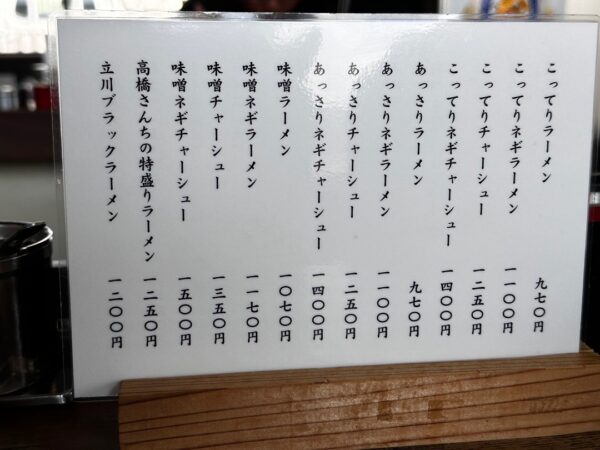 こってりラーメン 九七〇円
こってりネギラーメン 一一〇〇円
こってりチャーシュー 一二五〇円
こってりネギチャーシュー 一四〇〇円
あっさりラーメン 九七〇円
あっさりネギラーメン 一一〇〇円
あっさりチャーシュー 一二五〇円
あっさりネギチャーシュー 一四〇〇円
味噌ラーメン 一〇七〇円
味噌ネギラーメン 一一七〇円
味噌チャーシュー 一三五〇円
味噌ネギチャーシュー 一五〇〇円
高橋さんちの特盛りラーメン 一二五〇円
立川ブラックラーメン 一二〇〇円